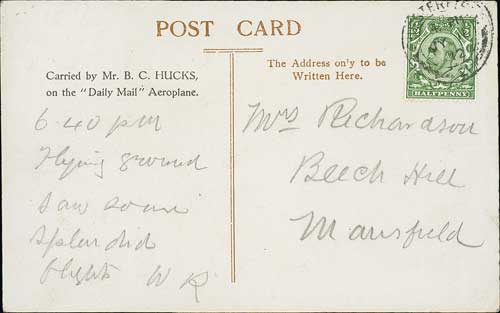 POST CARD
Carried by Mr. B. C. HUCKS,
on the "Daily Mail" Aeroplane.
6.40 pm
Flying ground
Saw some
splendid
flights W R
The Address only to be
Written Here.
Mrs Richardson
Beech Hill
Mansfield
HALFPENNY